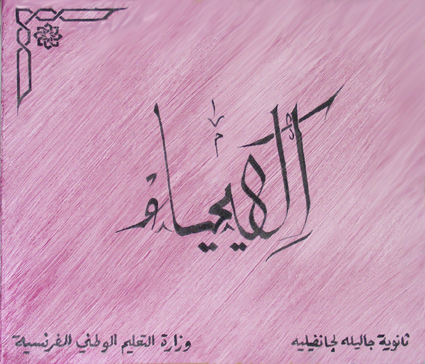 الكيمياء
ثانوية جاليله لجانفيليه
وزارة التعليم الوطني الفرنسية